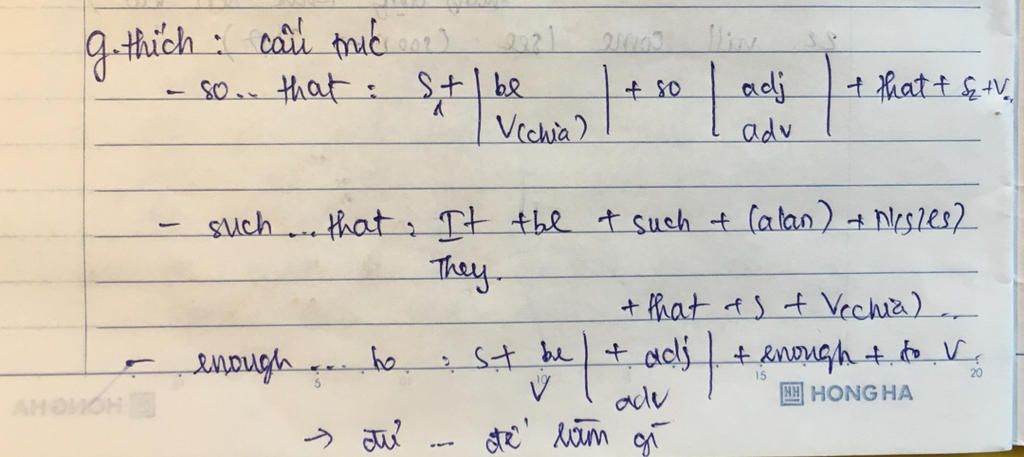 g.thích : cấu trúc
- so... that : S₁ + | be | + so | adj | + that + S₂ + V..
V(chia) | | adv |
- such ... that : It + be + such + (a/an) + N(s/es)
They.
+ that + S + V(chia) ..
- enough ... to : S + be | + adj | + enough + to V.
V | adv |
5 10 15 20
HH HONG HA
→ đủ ... để làm gì